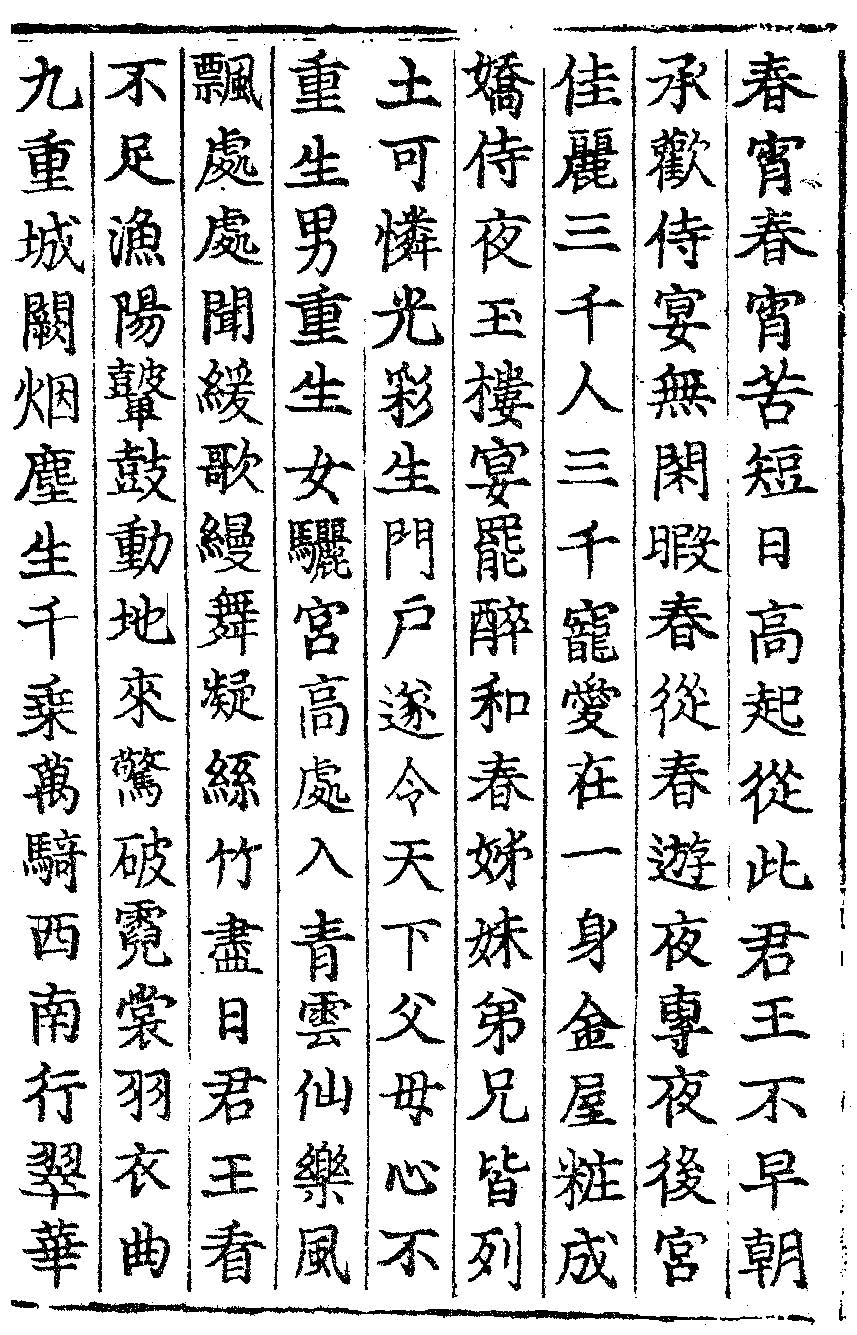 春宵春宵苦短日高起從此君王不早朝
承歡侍宴無閑暇春從春遊夜專夜後宮
佳麗三千人三千寵愛在一身金屋粧成
嬌侍夜玉樓宴罷醉和春姊妹弟兄皆列
土可憐光彩生門户遂令天下父母心不
重生男重生女驪宮高處入青雲仙樂風
飄處處聞緩歌縵舞凝絲竹盡日君王看
不足漁陽鼙鼓動地來驚破霓裳羽衣曲
九重城闕烟塵生千乗萬騎西南行翠華